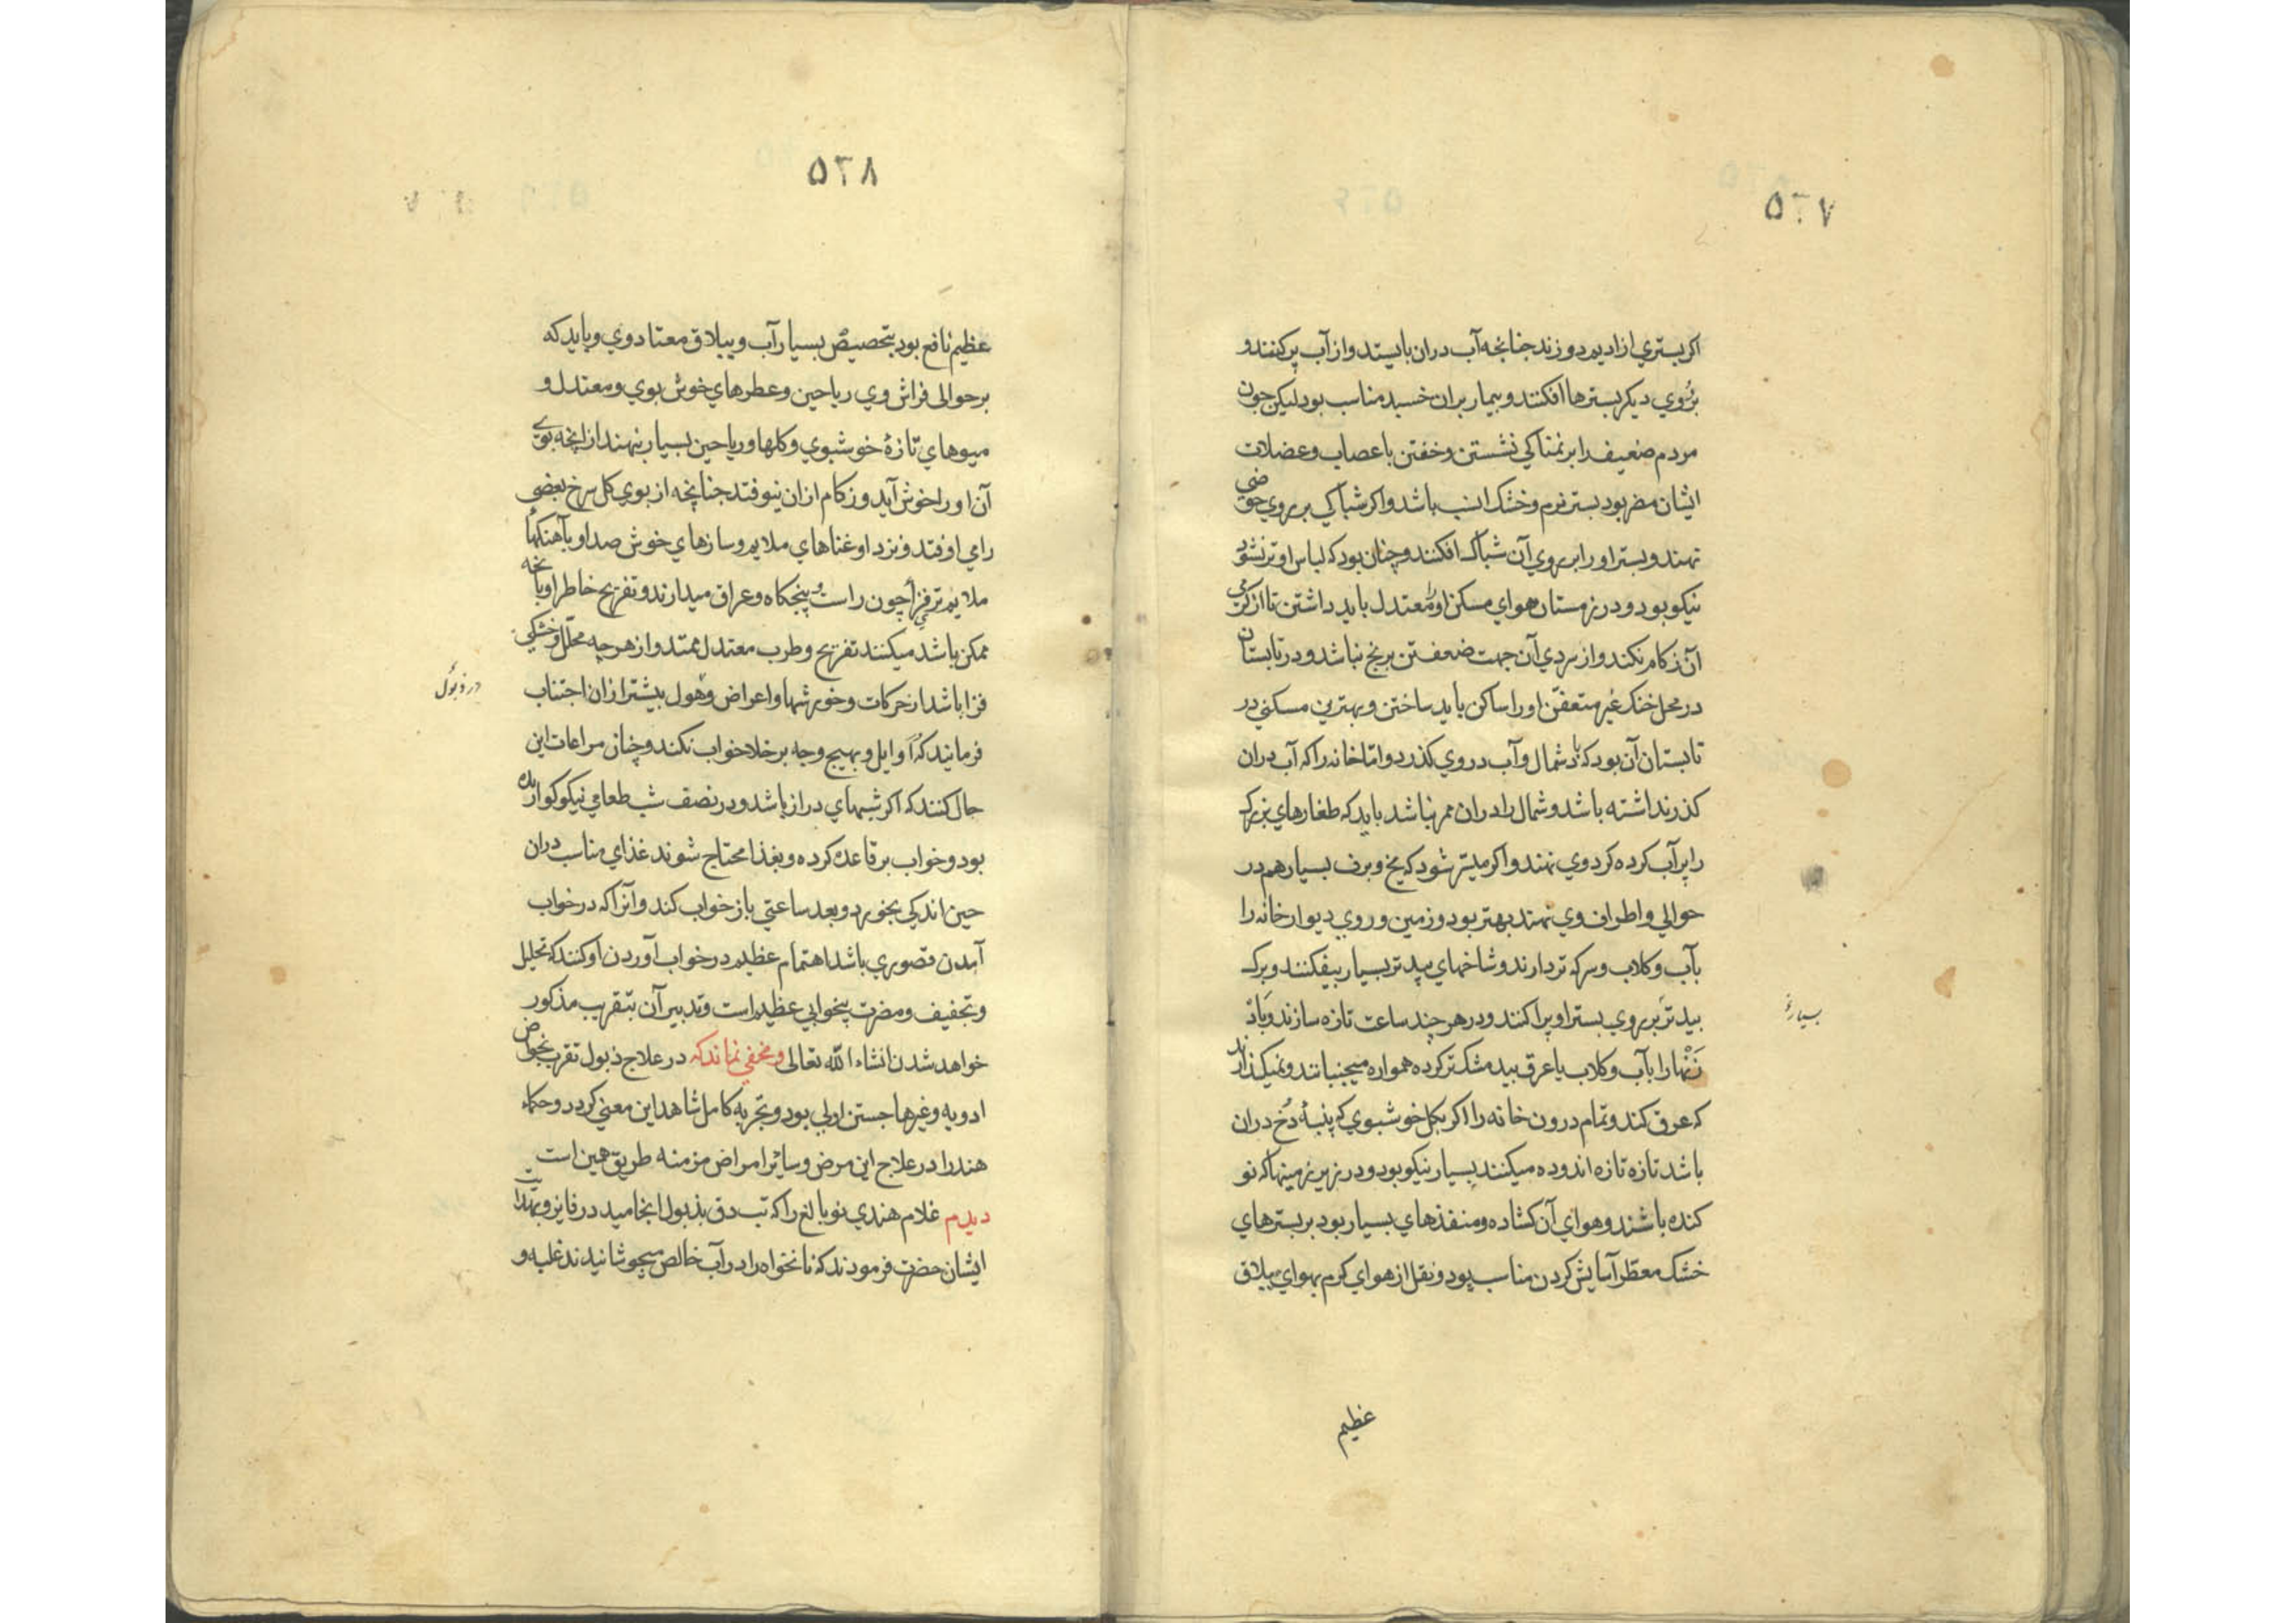 ۵۲۷
اکر بستري از اديم دوزند جنانچه آب دران بايستد و از آب پر کنند و
بر روي ديکر بسترها افکنند و بيمار بران خسبد مناسب بود ليکن جون
مردم ضعيف را بر نمناکي نشستن و خفتن باعصاب و عضلات
ايشان مضر بود بستر نرم و خشک انسب باشد و اکر شباکي بر روي حوضي
نهند و بستر او را بر روي آن شباک افکنند و چنان بود که لباس او تر نشود
نيکو بود و در زمستان هواي مسکن او را معتدل بايد داشتن تا از کرمي
آن زکام نکند و از سردي آن جهت ضعف تن برنج نباشد و در تابستان
در محل خنک غير متعفن او را ساکن بايد ساختن و بهترين مسکني در
تابستان آن بود که باد شمال و آب در وي کذرد و اما خانه را که آب دران
کذر نداشته باشد و شمال را دران ممر نباشد بايد که طغارهاي بزرک
را پر آب کرده کرد وي نهند و اکر ميسر شود که يخ و برف بسيار هم در
حوالي و اطراف وي نهند بهتر بود و زمين و روي ديوار خانه را
بآب و کلاب و سرکه تر دارند و شاخهاي بيد تر بسيار بيفکنند و برک
بيد تر بر روي بستر او پراکنند و در هر چند ساعت تازه سازند و باد
زنها را بآب و کلاب يا عرق بيد مشک تر کرده همواره ميجنبانند و نميکذارند
که عرق کند و تمام درون خانه را اکر بکل خوشبوي که پنبهٔ دخ دران
باشد تازه تازه اندوده ميکنند بسيار نيکو بود و در زير زمينها که نو
کنده باشند و هواي آن کشاده و منفذهاي بسيار بود بر بسترهاي
خشک معطر آسايش کردن مناسب بود و نقل از هواي کرم بهواي ييلاق
عظيم
۵۲۸
عظيم نافع بود بتخصيص بسيار آب و ييلاق معتاد وي و بايد که
بر حوالی فراش وي رياحين و عطرهاي خوش بوي و معتدل و
ميوهاي تازهٔ خوشبوي و کلها و رياحين بسيار بنهند از انچه بوي
آن او را خوش آيد و زکام ازان نيوفتد جنانچه از بوي کل سرخ بعضي
را مي اوفتد و نزد او غناهاي ملايم و سازهاي خوش صدا و بآهنکها
ملايم ترقي فزا چون راست و پنجکاه و عراق ميدارند و تفريح خاطر او بانچه
ممکن باشد ميکنند تفريح و طرب معتدل ممتد و از هرچه محلل و خشکي
فزا باشد از حرکات و خورشها و اعراض و هول بيشتر ازان اجتناب
فرمايند که اوايل و بهيچ وجه بر خلا خواب نکند و چنان مراعات اين
حال کنند که اکر شبهاي دراز باشد و در نصف شب طعامي نيکو کواريده
بود و خواب بر قاعده کرده و بغذا محتاج شوند غذاي مناسب دران
حين اندکي بخورد و بعد ساعتي باز خواب کند و آنرا که در خواب
آمدن قصوري باشد اهتمام عظيم در خواب آوردن او کنند که تحليل
و تجفيف و مضرت بيخوابي عظيم است و تدبير آن بتقريب مذکور
خواهد شدن انشاء الله تعالی و مخفي نماند که در علاج ذبول تقرب بخواص
ادويه و غيرها جستن اولي بود و تجربه کامل شاهد اين معني کردد و حکماء
هند را در علاج اين مرض و ساير امراض مزمنه طريق همين است
ديدم غلام هندي نو بالغ را که تب دق بذبول انجاميد در فاين و بهدايت
ايشان حضرت فرمودند که نانخواه را در آب خالص ميجوشانيدند غلبه و